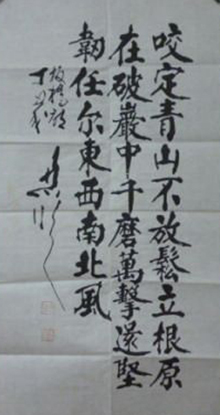 咬定青山不放鬆立根原
在破巖中千磨萬擊還堅
韌任尔東西南北風
板橋
丁